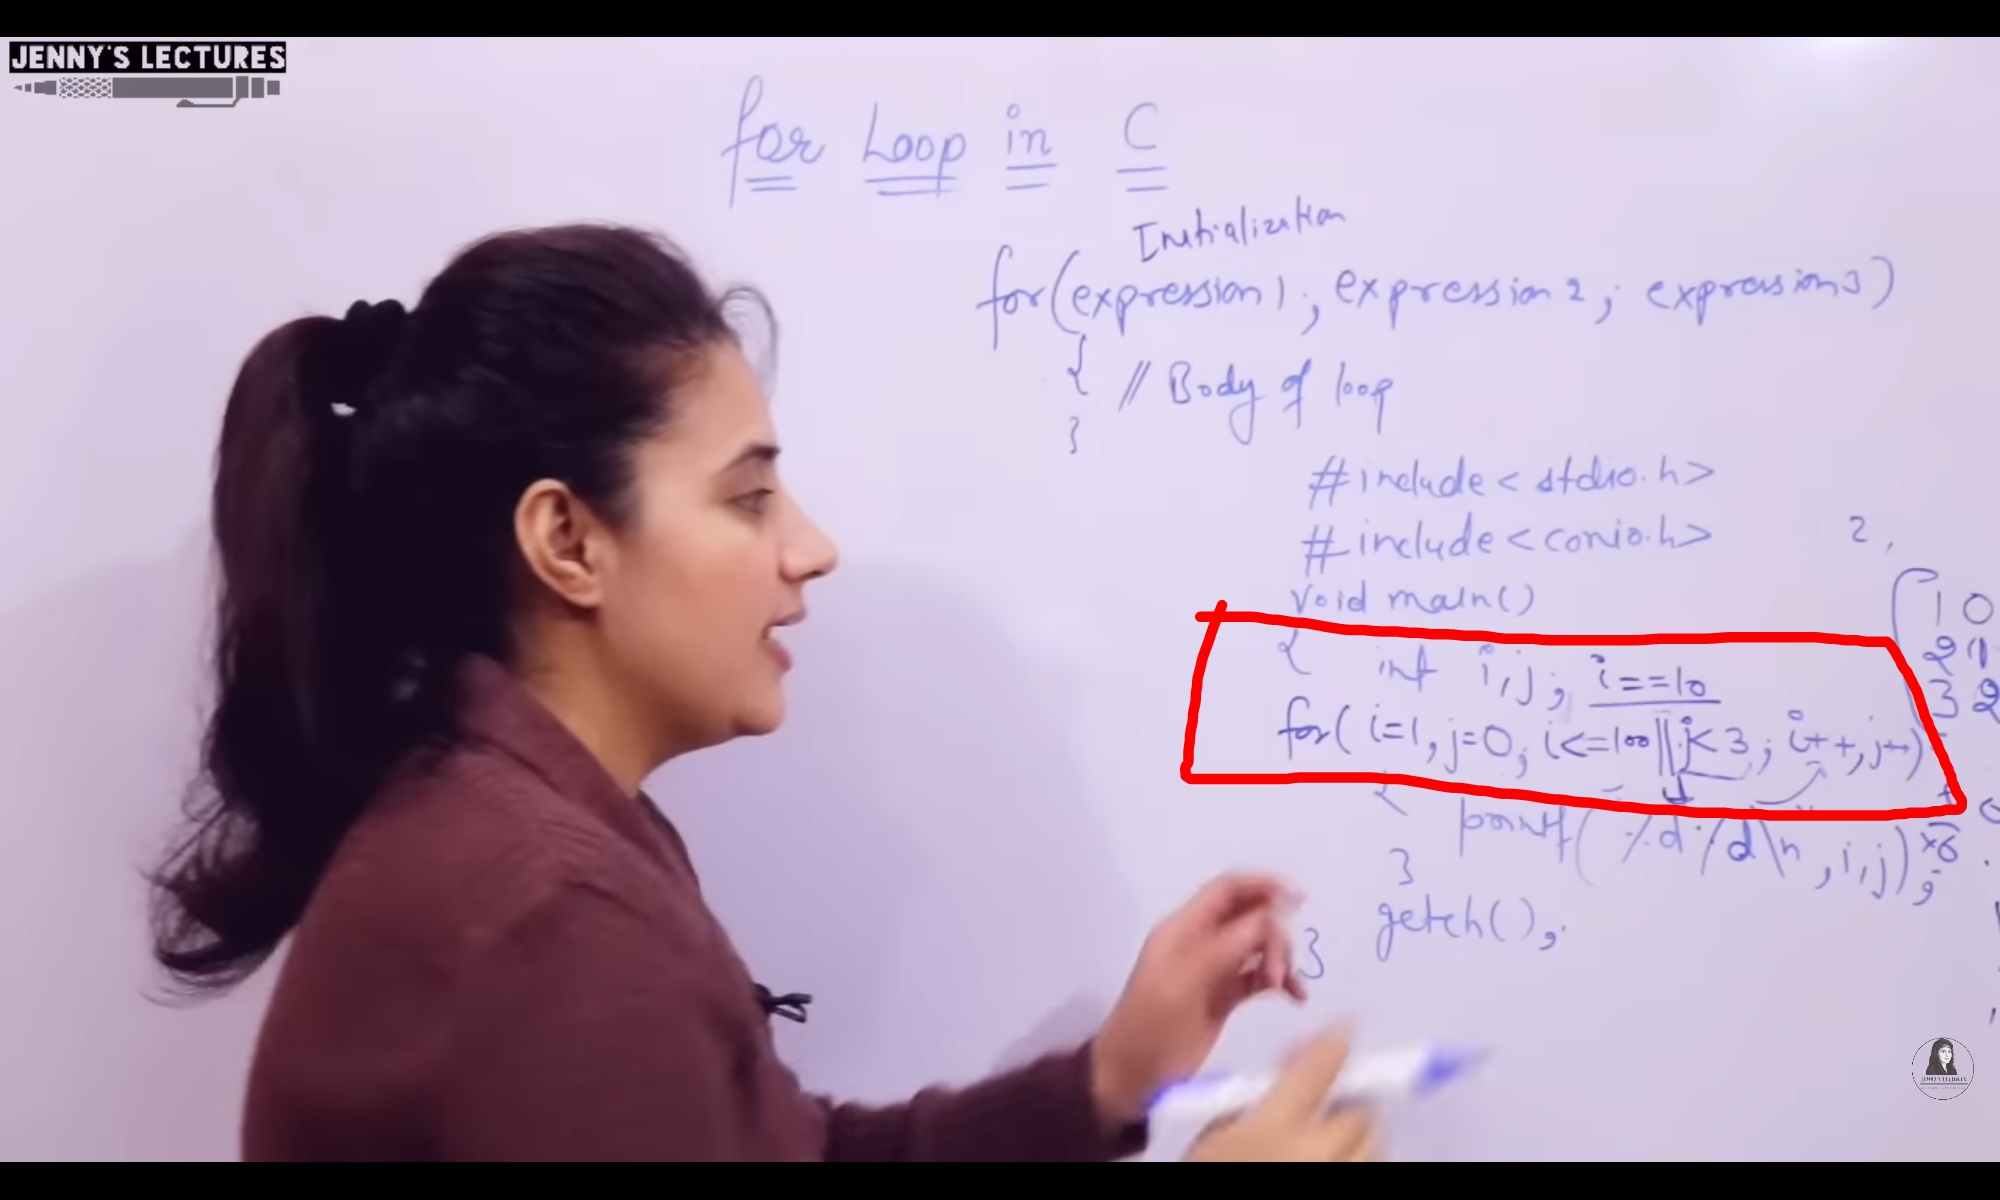 JENNY'S LECTURES
for Loop in C
Initialization
for(expression1; expression2; expression3)
{ // Body of loop
}
#include<stdio.h>
#include<conio.h>
2,
void main()
1 0
{ int i,j; i==10
2 1
3 2
for( i=1, j=0; i<=100||j<3; i++, j++)
{
printf( %d%d\n ,i,j);
}
getch();
}
JENNY'S LECTURES